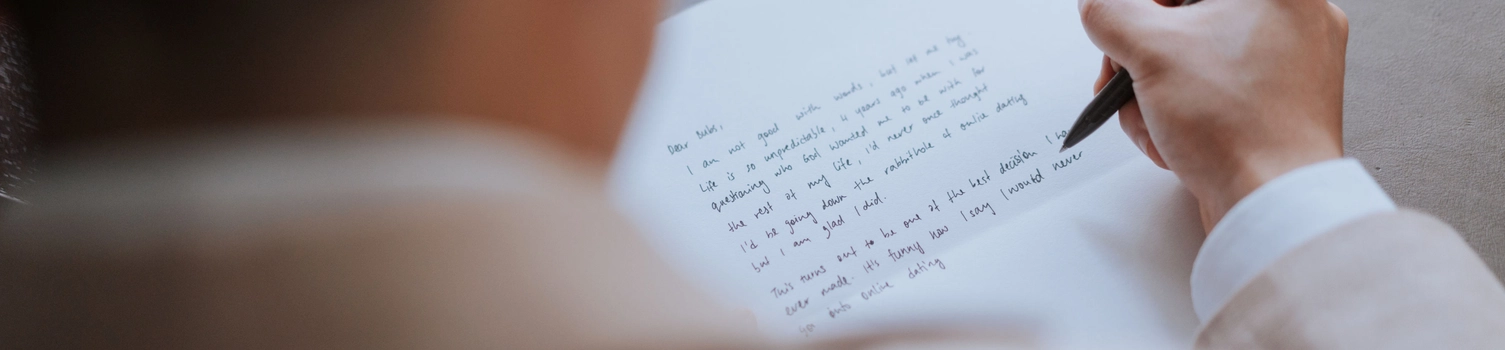 Dear Bubs,
I am not good with words, but let me try
Life is so unpredictable, 4 years ago when I was
questioning who God wanted me to be with for
the rest of my life, I'd never once thought
I'd be going down the rabbithole of online dating
but I am glad I did.
This turns out to be one of the best decision I ha
ever made. It's funny how I say I would never
go into online dating